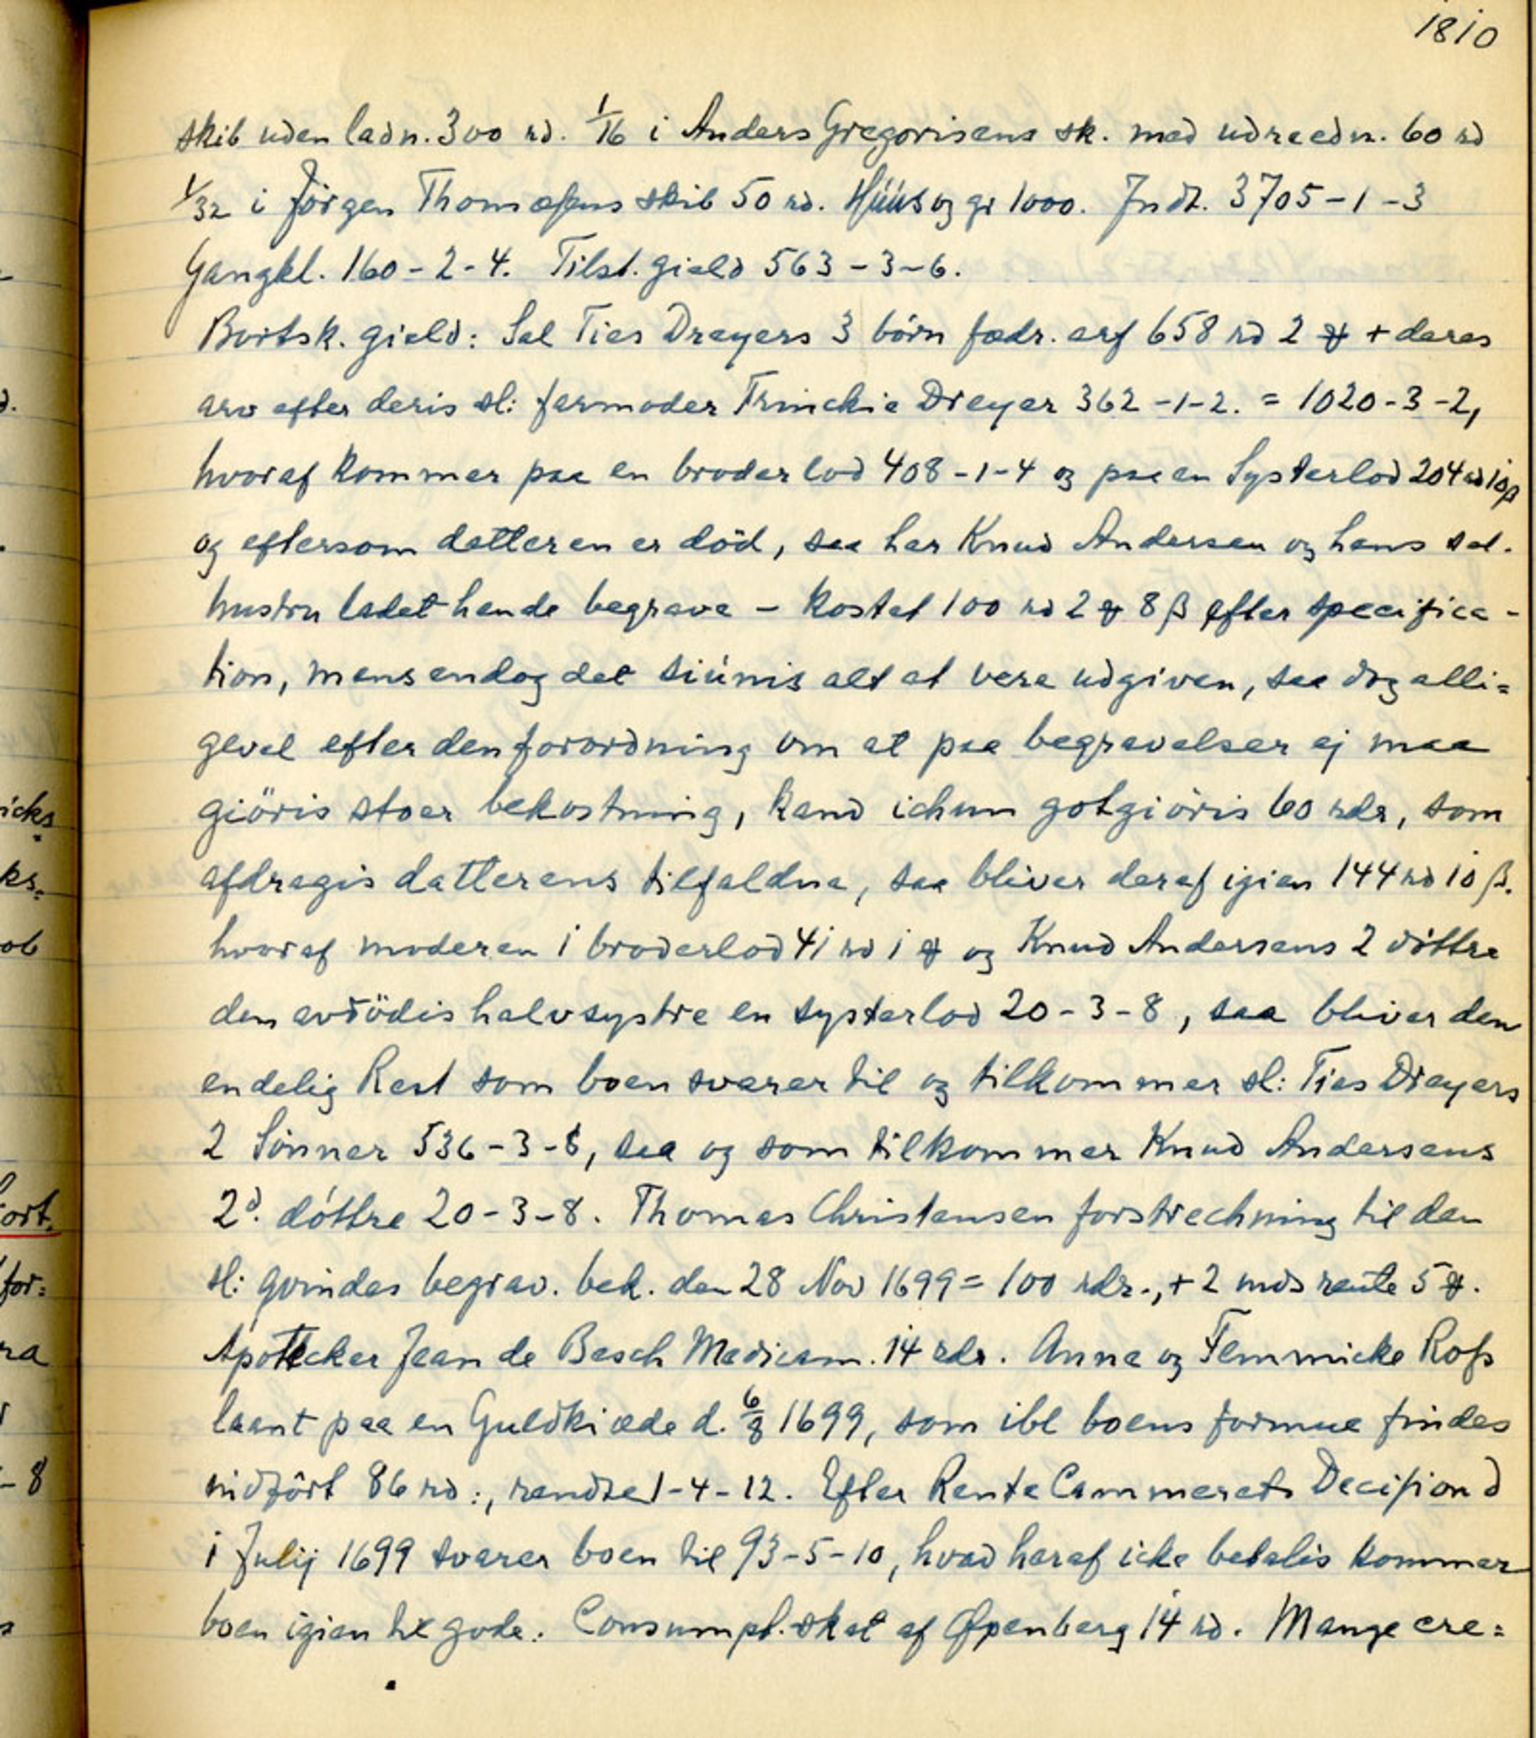 1810
skib uden ladn. 300 rd. 1/16 i Anders Gregorisens sk. med udreedn. 60 rd
1/32 i Jörgen Thomæsens skib 50 rd. Húús og gr 1000. Indt. 3705-1-3
Gangkl. 160-2-4. Tilst. gield 563-3-6.
Bortsk. gield: Sal Ties Dreyers 3 börn fædr. arf 658 rd 2 ꝸ + deres
arv efter deris sl: farmoder Trinckie Dreyer 362-1-2. = 1020-3-2,
hvoraf kommer paa en broderlod 408-1-4 og paa en Systerlod 204 rd 10 β
og eftersom datteren er död, saa har Knud Andersen og hans sal.
hustru ladet hende begrave - kostet 100 rd 2 ꝸ 8 β efter specifica-
tion, mens endog det siúnis alt at vere udgiven, saa dog alli=
gevel efter den forordning om at paa begravelser ej maa
giöris stoer bekostning, kand ichun gotgiöris 60 rdr, som
afdragis datterens tilfaldne, saa bliver deraf igien 144 rd 10 β.
hvoraf moderen i broderlod 41 rd 1 ꝸ og Knud Andersens 2 döttre
den avdödis halvsystre en systerlod 20-3-8, saa bliver den
endelig Rest som boen svarer til og tilkommer sl: Ties Dreyers
2 Sönner 536-3-8, saa og som tilkommer Knud Andersens
2d. döttre 20-3-8. Thomas Christensen forstrechning til den
sl: qvindes begrav. bek. den 28 Nov 1699 = 100 rdr., + 2 mds rente 5 ꝸ.
Apotecker Jean de Besch Medicam. 14 rdr. Anna og Femmicke Rofs
laant paa en Guldkiæde d. 6/8 1699, som ibl boens formue findes
nidfört 86 rd:, rendte 1-4-12. Efter Rente Cammerets Decision d
1 Julij 1699 svarer boen til 93-5-10, hvad heraf icke betalis kommer
boen igien til gode. Consumpt. skat af Openberg 14 rd. Mange cre=
icks
ks.
ob
fort.
for:
ra
-8